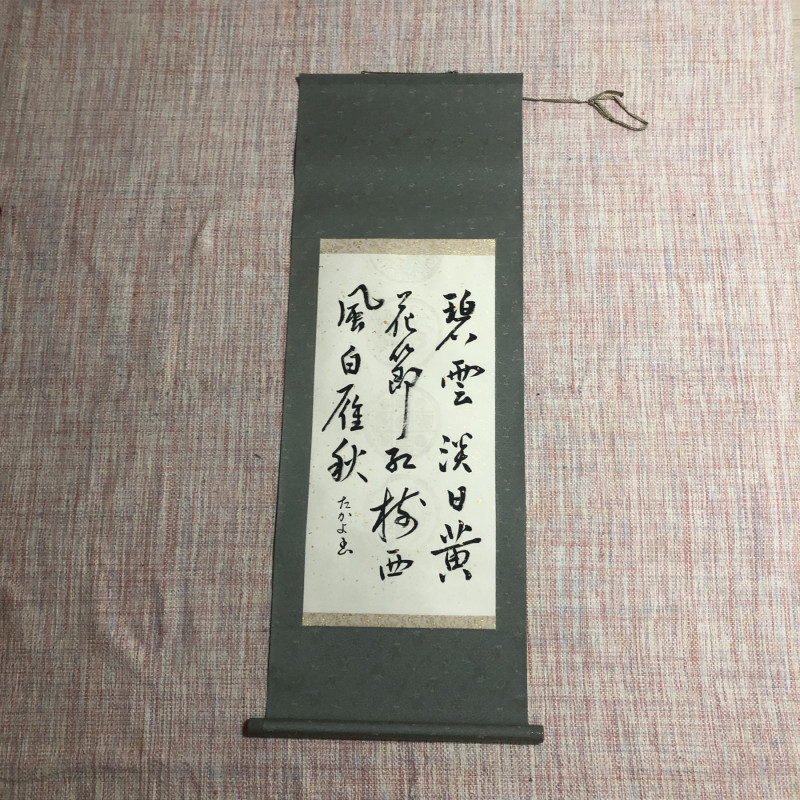 碧雲淡日黄
花節紅樹西
風白雁秋
たかよ書